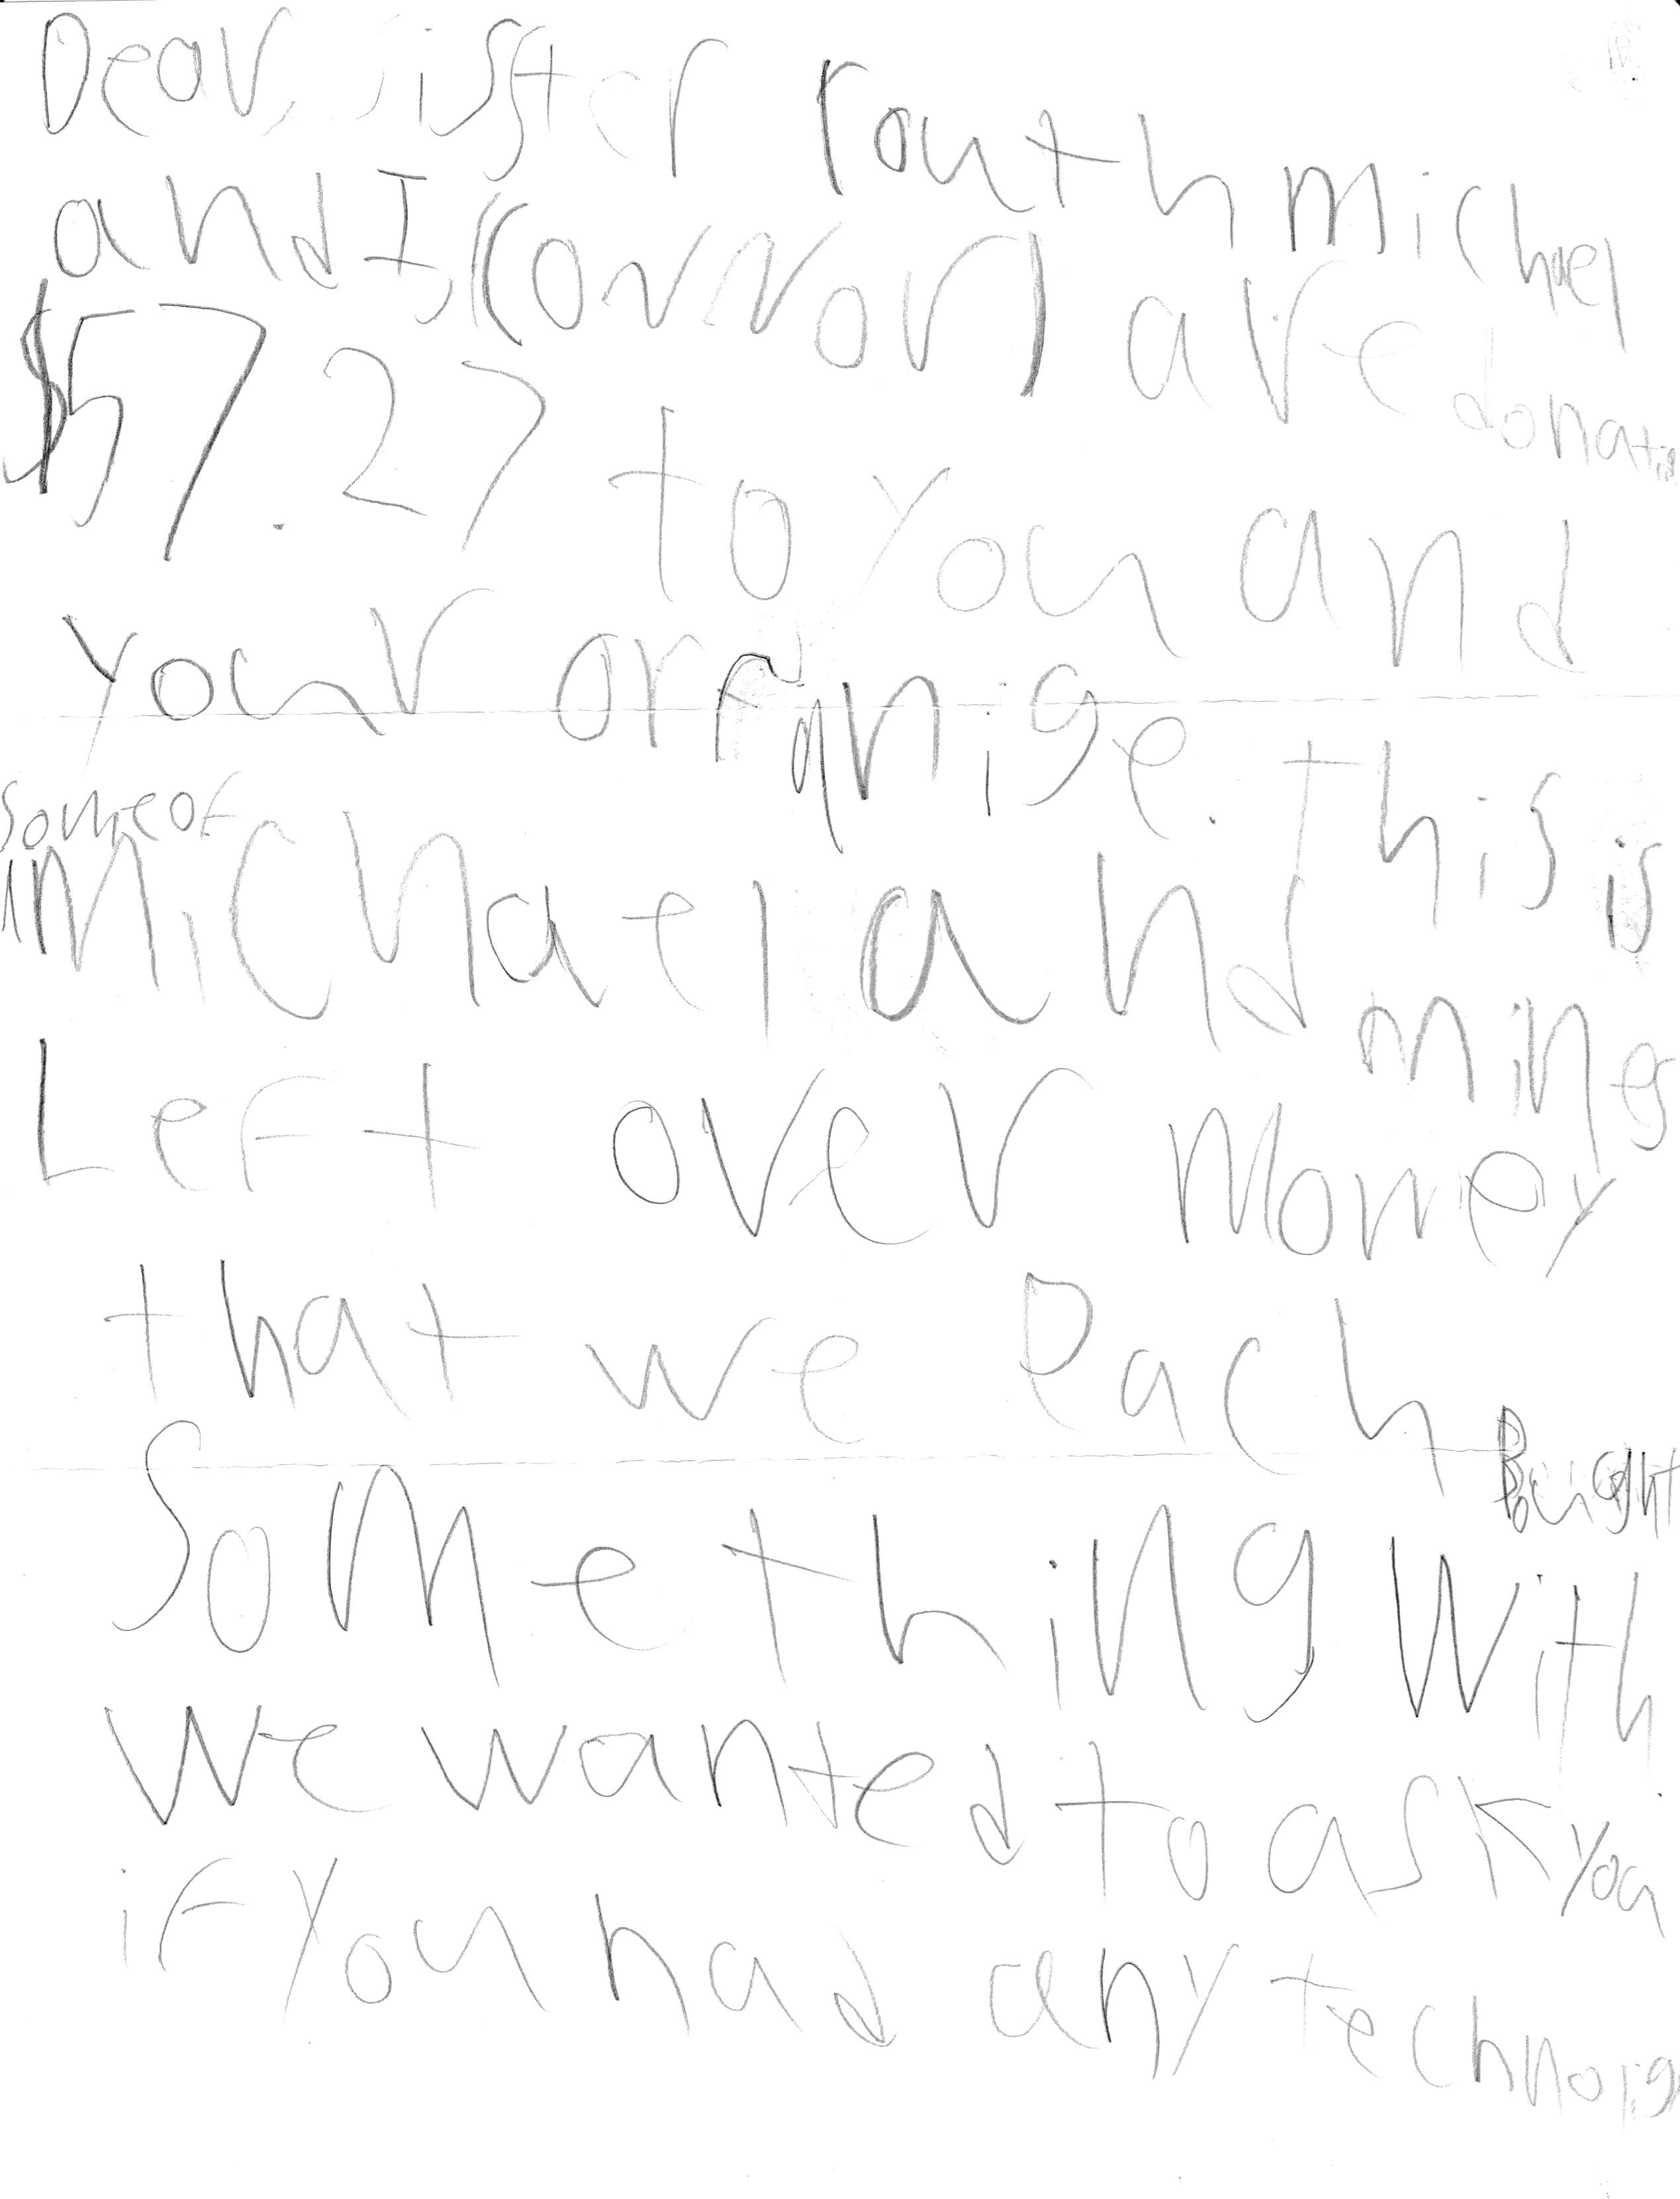 Dear, sister routh michael
and I, (connor) are donatin
$57.27 to you and
your orfanige. this is
some of
michael and mines
Left over money
that we each Bought
Something with.
We wanted to ask you
if you had any technolig